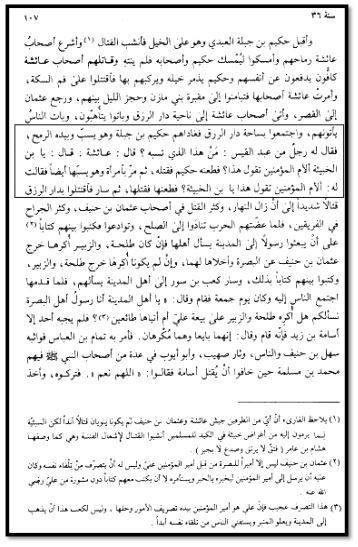 سنة ٣٦ ١٠٧
وأقبل حكيم بن جبلة العبدي وهو على الخيل فأنشب القتال (١) وأشرع أصحاب
عائشة رماحهم وأمسكوا ليُمْسك حكيم وأصحابه فلم ينته وقاتلهم أصحاب عائشة
كافّون يدفعون عن أنفسهم وحكيم يذمر خيله ويركبهم بها فأقتتلوا على فم السكة،
وأمرت عائشة أصحابها فتيامنوا إلى مقبرة بني مازن وحجز الليل بينهم، ورجع عثمان
إلى القصر، وأتى أصحاب عائشة إلى ناحية دار الرزق وباتوا يتأهبون، وبات الناسُ
يأتونهم، واجتمعوا بساحة دار الرزق فغاداهم حكيم بن جبلة وهو يسبّ وبيده الرمح،
فقال له رجل من عبد القيس: مَنْ هذا الذي تسبه؟ قال: عائشة: قال: يا بن
الخبيثة ألأم المؤمنين تقول هذا؟ فطعنه حكيم فقتله، ثم مرّ بأمرأة وهو يسبّها أيضاً فقالت
له: ألأم المؤمنين تقول هذا يا بن الخبيثة؟ فطعنها فقتلها، ثم سار فأقتتلوا بدار الرزق
قتالاً شديداً إلى أن زال النهار، وكثر القتل في أصحاب عثمان بن حنيف، وكثر الجراح
في الفريقين، فلما عضّتهم الحرب تنادَوْا إلى الصلح، وتوادعوا فكتبوا بينهم كتاباً (٢)
على أنْ يبعثوا رسولاً إلى المدينة يسأل أهلها فإنْ كان طلحة، والزبير أُكرها خرج
عثمان بن حنيف عن البصرة وأخلاها لهما، وإنْ لم يكونا أُكرها خرج طلحة، والزبير،
وكتبوا بينهم كتاباً بذلك، وسار كعب بن سور إلى أهل المدينة يسألهم، فلما قدمها
اجتمع الناس إليه وكان يوم جمعة فقام وقال: « يا أهل المدينة أنا رسولُ أهل البصرة
نسألكم هل أُكره طلحة والزبير على بيعة عليّ أم أتياها طائعين (٣)؟ فلم يجبه أحد إلا
أسامة بن زيد فإنّه قام وقال: إنهما بايعا وهما مُكرهان. فأمر به تمام بن العباس فواثبه
سهل بن حنيف والناس، وثار صهيب، وأبو أيوب في عدة من أصحاب النبي ﷺ فيهم
محمد بن مسلمة حين خافوا أنْ يُقتل أسامة فقالوا: « اللهم نعم ». فتركوه، وأخذ
(١) يلاحظ القارىء أنّ أيّ من الطرفين جيش عائشة وعثمان بن حنيف لم يكونا ينويان قتالاً أبداً لكن السبئيّة
بما يرمون إليه من أغراض خبيثة في الكيد للمسلمين أنشبوا القتال لإشعال الفتنة وهي كما وصفها
هشام بن عامر (فتق لا يرتق وصدع لا يجبر).
(٢) عثمان بن حنيف ليس إلا أميراً للبصرة من قبل أمير المؤمنين عليّ وليس له أنْ يتصرّف من تلقاء نفسه وكان
عليه أن يرسل إلى أمير المؤمنين ليخبره بالخبر ويستأمره لا أن يكتب معهم كتاباً دون مشورة من عليّ رضي
الله عنه.
(٣) هذا التصرف عجيب فإن علي هو أمير المؤمنين بيده تصريف الأمور وحلها، وليس لكعب هذا أنْ يذهب
إلى المدينة ويعلو المنبر ويستفتي الناس من تلقاء نفسه أبداً.